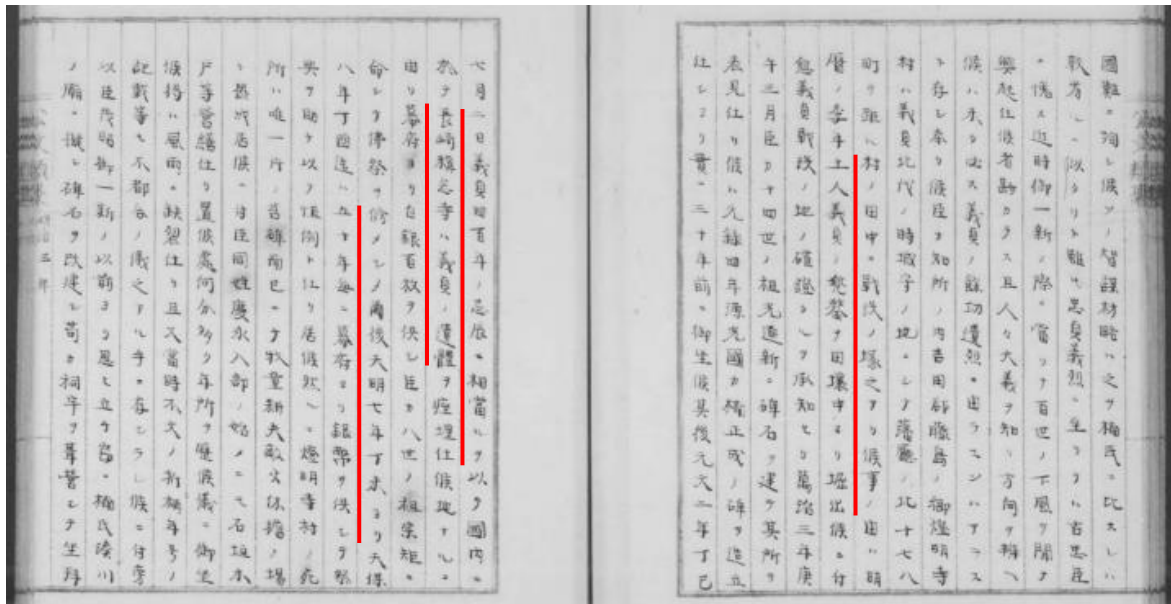 國難ニ殉シ候ソノ智謀材略ハ之ヲ楠氏ニ比スレハ
較劣ルニ似タリト雖モ忠貞義烈ニ至ツテハ古忠臣
ニ愧ス近時御一新ノ際ニ當ツテ百世ノ下風ヲ聞テ
興起仕候者尠カラス且人々大義ヲ知リ方向ヲ辨ヘ
候ハ未タ必ス義貞ノ餘功遺烈ニ由ラスンハアラス
ト存シ奉リ候臣カ知所ノ内吉田郡藤島ノ御燈明寺
村ハ義貞北伐ノ時城子ノ地ニシテ藩廳ノ北十七八
町ヲ距ル村ノ田中ニ戰歿ノ塚之アリ候事ノ由ハ明
暦ノ季年土人義貞ノ兜鍪ヲ田壤中ヨリ堀出候ニ付
愈義貞戰歿ノ地ノ確證タルヲ承知セリ萬治三年庚
子三月臣カ十四世ノ祖光通新ニ碑石ヲ建テ其所ヲ
表見仕リ候ハ元祿四年源光國カ楠正成ノ碑ヲ造立
仕ルヨリ實ニ三十年前ニ御坐候其後元文二年丁巳
七月二日義貞四百年ノ忌辰ニ相當ルヲ以テ國内ニ
於テ長崎稱念寺ハ義貞ノ遺體ヲ痙埋仕候地ナルニ
由リ幕府ヨリ白銀百枚ヲ供シ臣カ八世ノ祖宗矩ニ
命シテ佛祭ヲ修メシメ爾後天明七年丁未ヨリ天保
八年丁酉迄ハ五十年毎ニ幕府ヨリ銀幣ヲ供シテ祭
奠ヲ助ケ以テ恒例ト仕リ居候然ルニ燈明寺村ノ死
所ハ唯一片ノ苔碑而已ニテ牧童耕夫敲火休擔ノ場
ト相成居候ニ付臣同姓慶永入部ノ始メニ之石垣木
戸等營繕仕リ置候處何分多少年所ヲ歴候儀ニ御坐
候得ハ風雨ニ缺裂仕リ且又當時不文ノ折柄年号ノ
記載等モ不都合ノ儀之アル乎ニ存シ候ニ付旁
以臣茂昭御一新ノ以前ヨリ思ヒ立チ窃ニ楠氏湊川
ノ廟ニ擬シ碑石ヲ改建シ苟カ祠宇ヲ葺營シテ坐拜